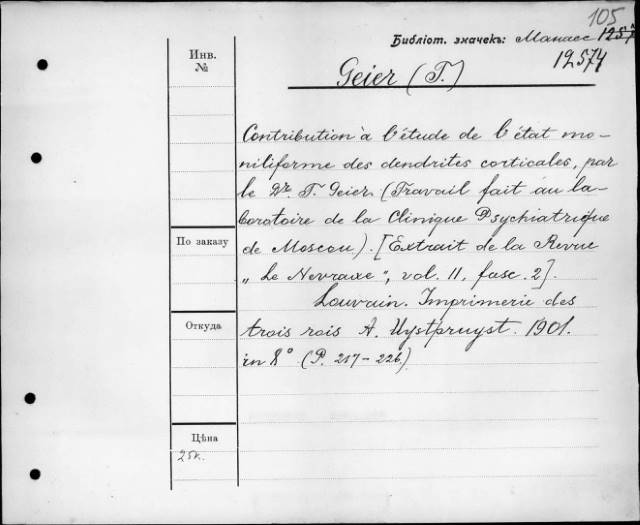 105
Библіот. значекъ: Манасс
12574
Инв.
№
Geier (T.)
Contribution à l'étude de l'état mo-
niliforme des dendrites corticales, par
le Dr. T. Geier. (Travail fait au la-
boratoire de la Clinique Psychiatrique
de Moscou). [Extrait de la Revue
„Le Nevraxe", vol. II, fasc. 2].
Louvain. Imprimerie des
trois rois A. Uystpruyst. 1901.
in 8° (P. 217-226.)
По заказу
Откуда
Цѣна
25к.